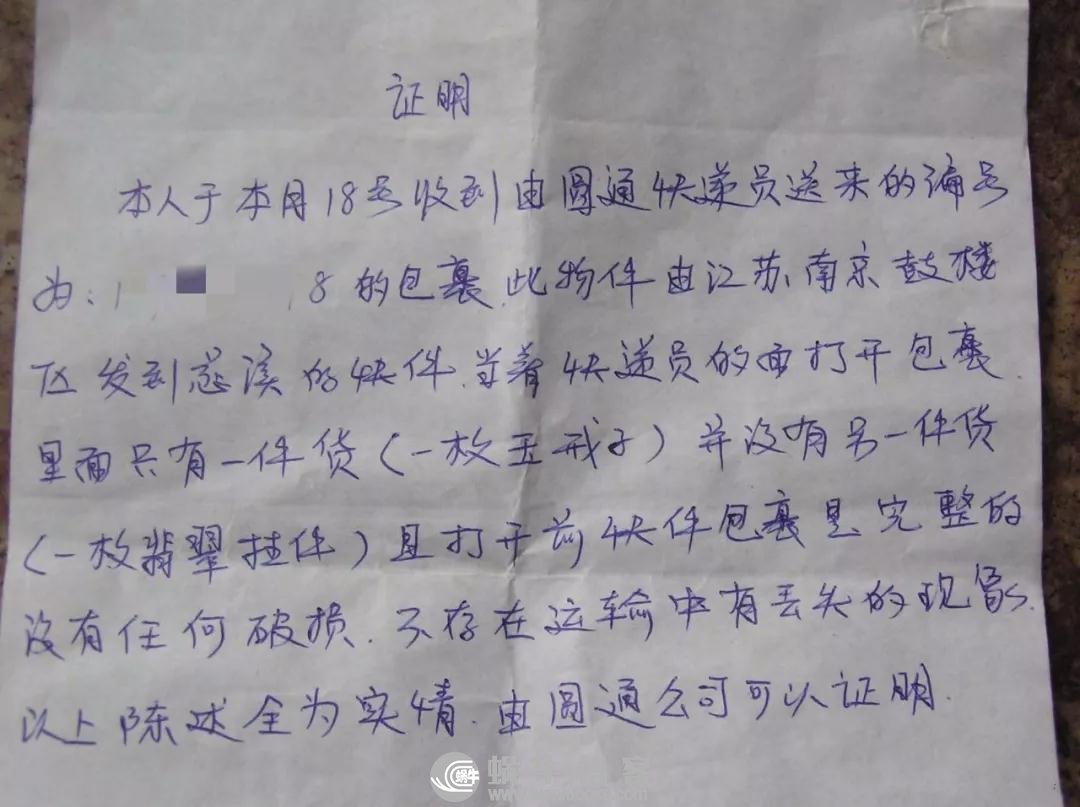 证明
本人于本月18号收到由圆通快递员送来的编号
为:1 8的包裹.此物件由江苏南京鼓楼
区发到慈溪的快件.当着快递员的面打开包裹.
里面只有一件货(一枚玉戒子)并没有另一件货
(一枚翡翠挂件)且打开前快件包裹是完整的
没有任何破损.不存在运输中有丢失的现象.
以上陈述全为实情.由圆通公司可以证明.
蜗牛